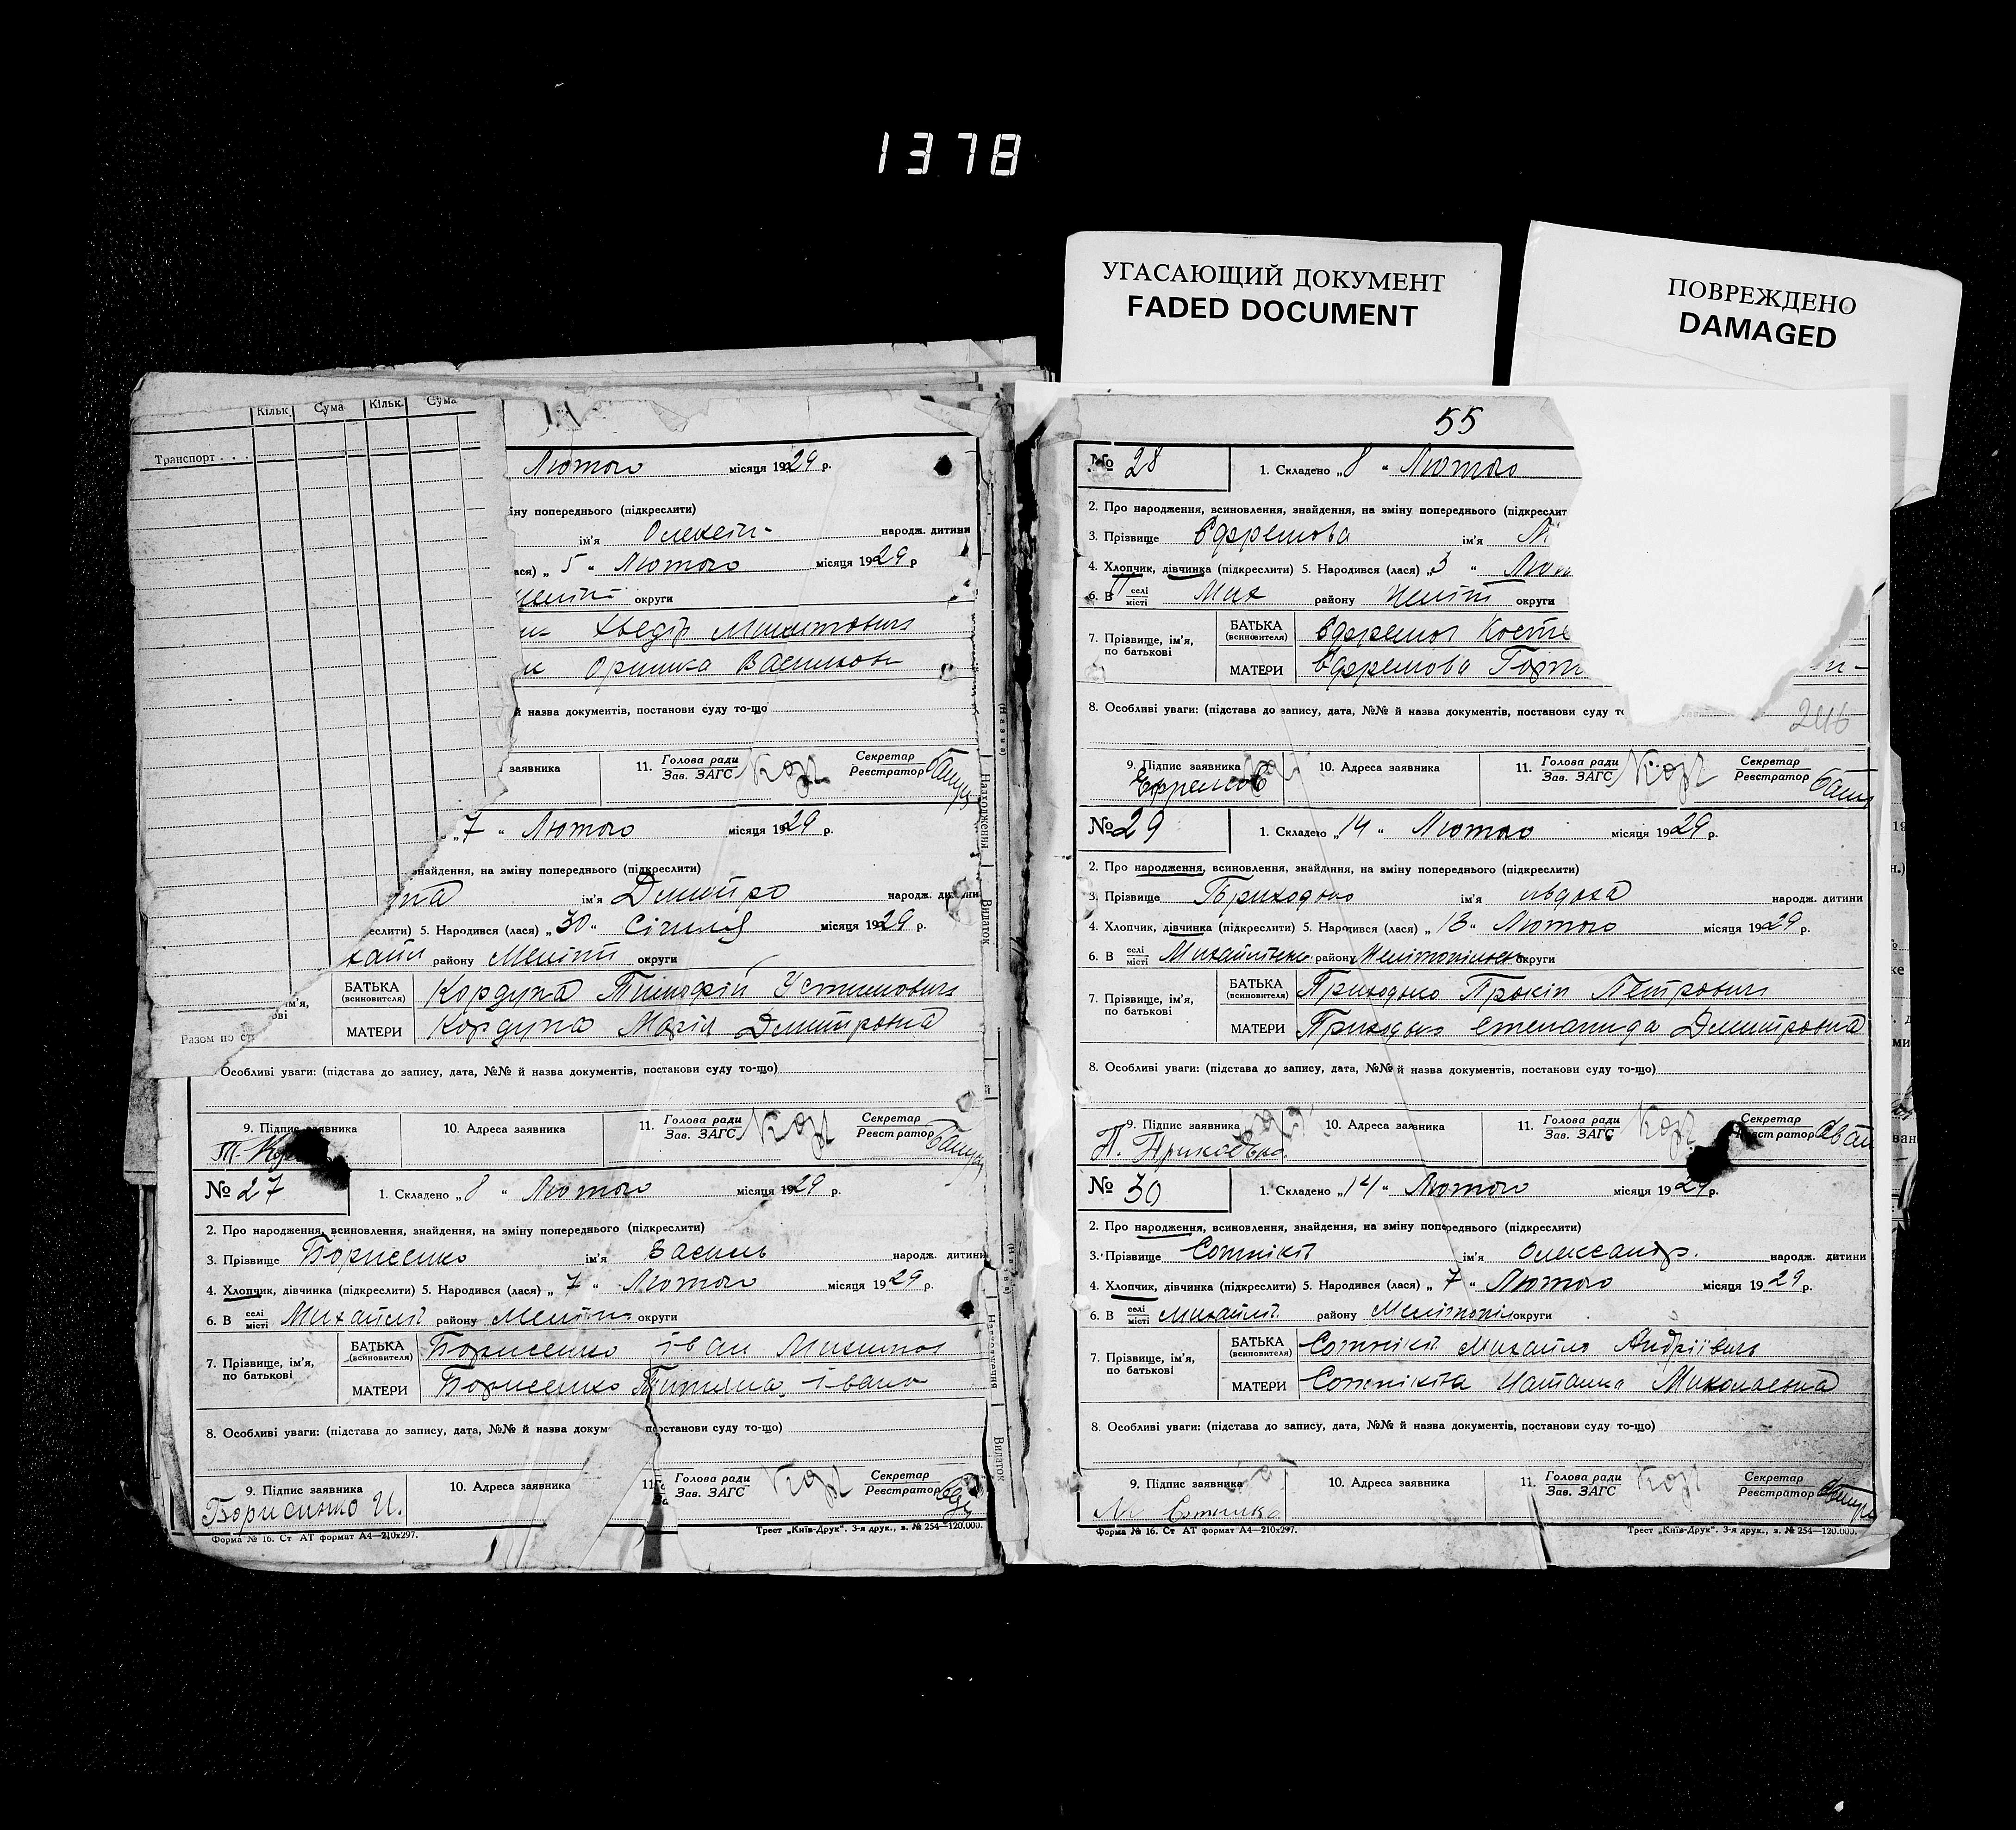 1378
УГАСАЮЩИЙ ДОКУМЕНТ
FADED DOCUMENT
ПОВРЕЖДЕНО
DAMAGED
Кільк. Сума Кільк. Сума
Транспорт . . .
Лютого місяця 1929 р.
іну попереднього (підкреслити)
ім'я Олексій народж. дитини
ася) „ 5 “ Лютого місяця 1929 р
округи
Хведір Микитович
Оришка Васильов
й назва документів, постанови суду то-що
заявника 11. Голова ради Зав. ЗАГС Секретар Реєстратор
„ 7 “ Лютого місяця 1929 р.
знайдення, на зміну попереднього (підкреслити)
па ім'я Дмитро народж. дитини
еслити) 5. Народився (лася) „ 30 “ Січня місяця 1929 р.
хайл району Меліт округи
БАТЬКА (всиновителя) Кордупа Тимофій Устимович
МАТЕРИ Кордупа Марія Дмитровна
Разом по ст
Особливі уваги: (підстава до запису, дата, №№ й назва документів, постанови суду то-що)
9. Підпис заявника 10. Адреса заявника 11. Голова ради Зав. ЗАГС Секретар Реєстратор
№ 27 1. Складено „ 8 “ Лютого місяця 1929 р.
2. Про народження, всиновлення, знайдення, на зміну попереднього (підкреслити)
3. Прізвище Борисенко ім'я Василь народж. дитини
4. Хлопчик, дівчинка (підкреслити) 5. Народився (лася) „ 7 “ Лютого місяця 1929 р.
6. В селі місті Михайлів району Меліт округи
7. Прізвище, ім'я, по батькові
БАТЬКА (всиновителя) Борисенко Іван
МАТЕРИ Борисенко Титяна Івано
8. Особливі уваги: (підстава до запису, дата, №№ й назва докум постанови суду то-що)
9. Підпис заявника 10. Адреса заявника 11. Голова ради Зав. ЗАГС Секретар Реєстратор
Борисенко И.
Форма № 16. Ст АТ формат А4—210х297. Трест „Київ-Друк“. 3-я друк., з. № 254—120.000.
55
№ 28 1. Складено „ 8 “ Лютого
2. Про народження, всиновлення, знайдення, на зміну попереднього (підкреслит
3. Прізвище Єфремова ім'я
4. Хлопчик, дівчинка (підкреслити) 5. Народився (лася) „ 3 “ Лют
6. В селі місті Мих району Меліт округи
7. Прізвище, ім'я, по батькові
БАТЬКА (всиновителя) Єфремов Костя
МАТЕРИ Єфремова
8. Особливі уваги: (підстава до запису, дата, №№ й назва документів, постанови суду то
246
9. Підпис заявника 10. Адреса заявника 11. Голова ради Зав. ЗАГС Секретар Реєстратор
Ефремов
№ 29 1. Складено „ 14 “ Лютого місяця 1929 р.
2. Про народження, всиновлення, знайдення, на зміну попереднього (підкреслити)
3. Прізвище Приходько ім'я народж. дитини
4. Хлопчик, дівчинка (підкреслити) 5. Народився (лася) „ 13 “ Лютого місяця 1929 р.
6. В селі місті району округи
7. Прізвище, ім'я, по батькові
БАТЬКА (всиновителя) Приходько Прокіп Петрович
МАТЕРИ Приходько Степанида Дмитровна
8. Особливі уваги: (підстава до запису, дата, №№ й назва документів, постанови суду то-що)
9. Підпис заявника 10. Адреса заявника 11. Голова ради Зав. ЗАГС Секретар Реєстратор
П. Приходько
№ 30 1. Складено „ 14 “ Лютого місяця 1929 р.
2. Про народження, всиновлення, знайдення, на зміну попереднього (підкреслити)
3. Прізвище Сотніків ім'я Олександр. народж. дитини
4. Хлопчик, дівчинка (підкреслити) 5. Народився (лася) „ 7 “ Лютого місяця 1929 р.
6. В селі місті Михайлів району Мелітопіл округи
7. Прізвище, ім'я, по батькові
БАТЬКА (всиновителя) Сотніків Михайло Андріївич
МАТЕРИ Сотніківа Наталка Миколаєвна
8. Особливі уваги: (підстава до запису, дата, №№ й назва документів, постанови суду то-що)
9. Підпис заявника 10. Адреса заявника 11. Голова ради Зав. ЗАГС Секретар Реєстратор
Форма № 16. Ст АТ формат А4—210х297. Трест „Київ-Друк“. 3-я друк., з. № 254—120.000.